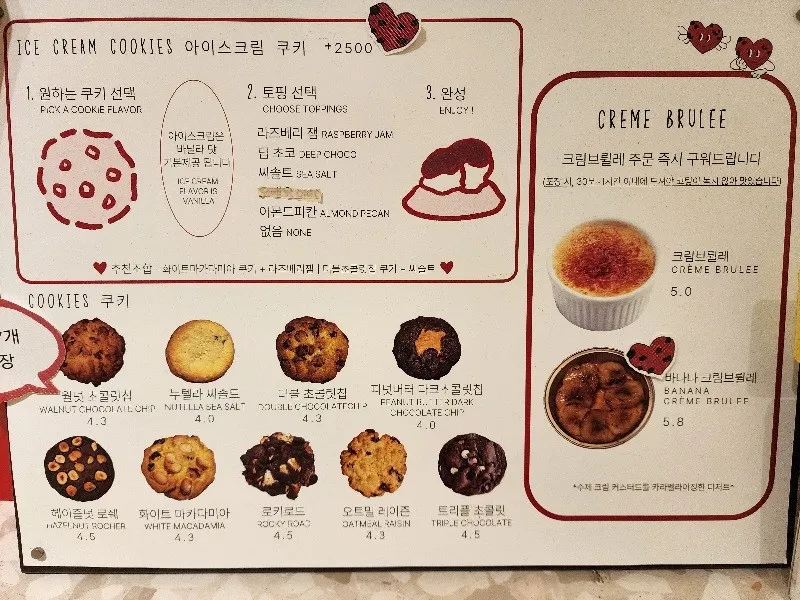 ICE CREAM COOKIES 아이스크림 쿠키 +2500
1. 원하는 쿠키 선택
PICK A COOKIE FLAVOR
아이스크림은
바닐라 맛
기본제공 됩니다
ICE CREAM
FLAVOR IS
VANILLA
2. 토핑 선택
CHOOSE TOPPINGS
라즈베리 잼 RASPBERRY JAM
딥 초코 DEEP CHOCO
씨솔트 SEA SALT
아몬드피칸 ALMOND PECAN
없음 NONE
3. 완성
ENJOY !
추천조합 화이트마카다미아 쿠키 + 라즈베리잼 | 더블초콜릿칩 쿠키 + 씨솔트
COOKIES 쿠키
개
장
월넛 초콜릿칩
WALNUT CHOCOLATE CHIP
4.3
누텔라 씨솔트
NUTELLA SEA SALT
4.0
더블 초콜릿칩
DOUBLE CHOCOLATE CHIP
4.3
피넛버터 다크초콜릿칩
PEANUT BUTTER DARK
CHOCOLATE CHIP
4.0
헤이즐넛 로쉐
HAZELNUT ROCHER
4.5
화이트 마카다미아
WHITE MACADAMIA
4.3
로키로드
ROCKY ROAD
4.5
오트밀 레이즌
OATMEAL RAISIN
4.3
트리플 초콜릿
TRIPLE CHOCOLATE
4.5
CREME BRULEE
크림브륄레 주문 즉시 구워드립니다
(포장 시, 30분 이내에 드셔야 코팅이 녹지 않아 맛있습니다)
크림브륄레
CRÈME BRULEE
5.0
바나나 크림브륄레
BANANA
CRÈME BRULEE
5.8
*수제 크림 커스터드를 카라멜라이징한 디저트*